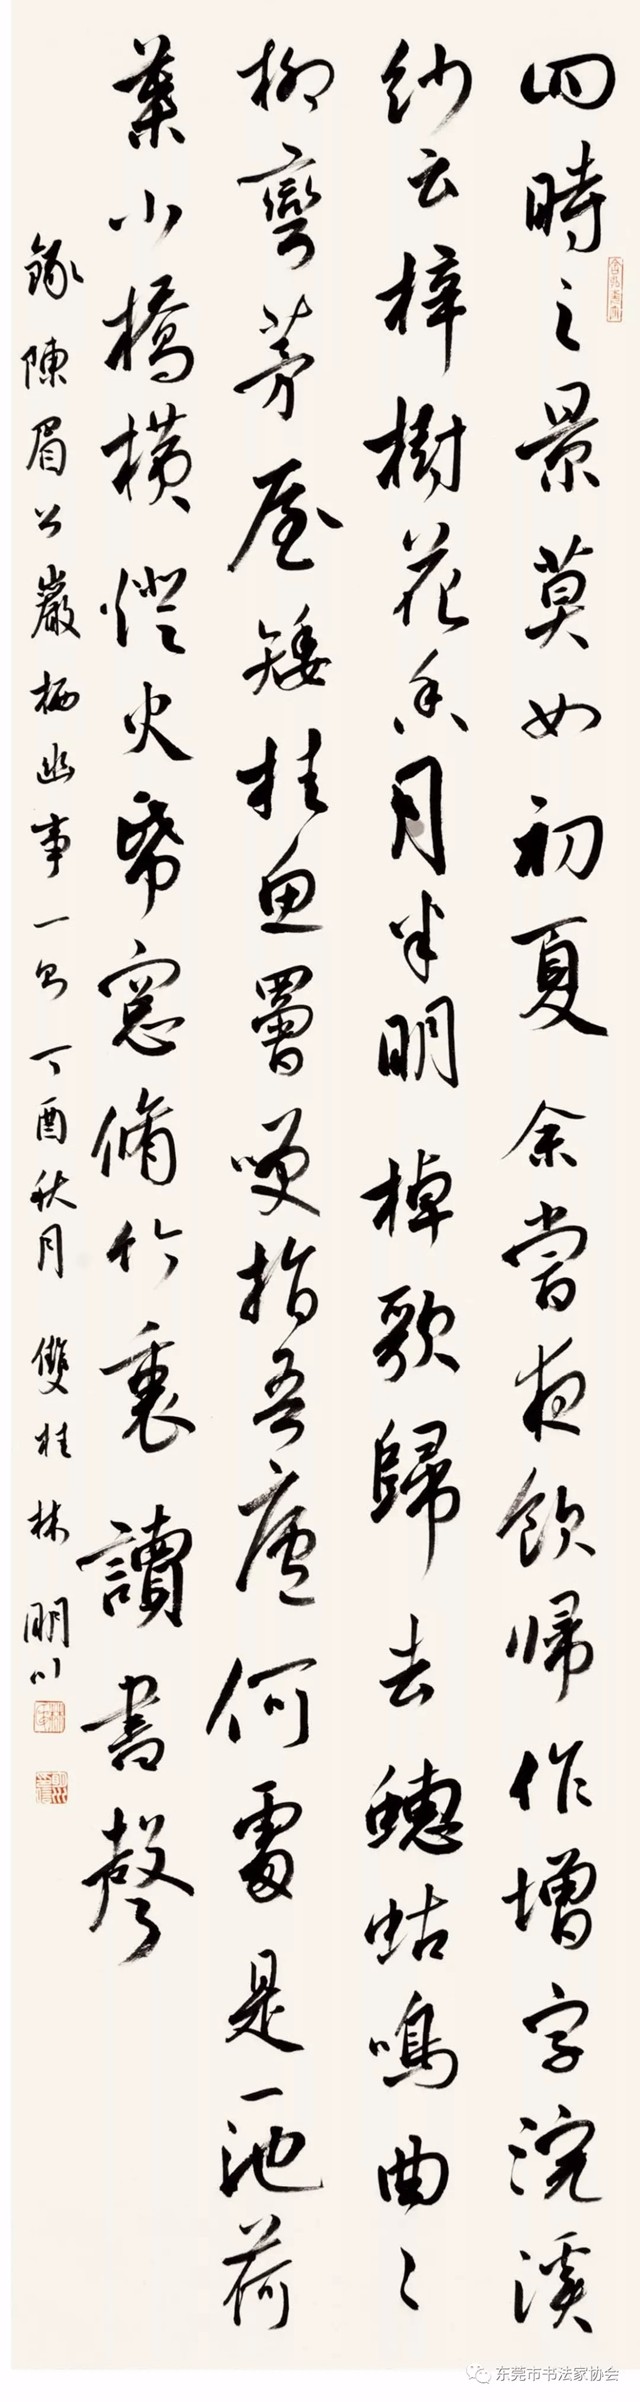 四時之景莫如初夏余嘗夜飲歸作增字浣溪
紗云梓樹花香月半明棹歌歸去蟪蛄鳴曲〻
柳彎茅屋矮挂魚罾笑指吾廬何處是一池荷
葉小橋橫燈火紙窓脩竹裏讀書聲
錄陳眉公巖栖幽事一則丁酉秋月雙桂林明川
东莞市书法家协会